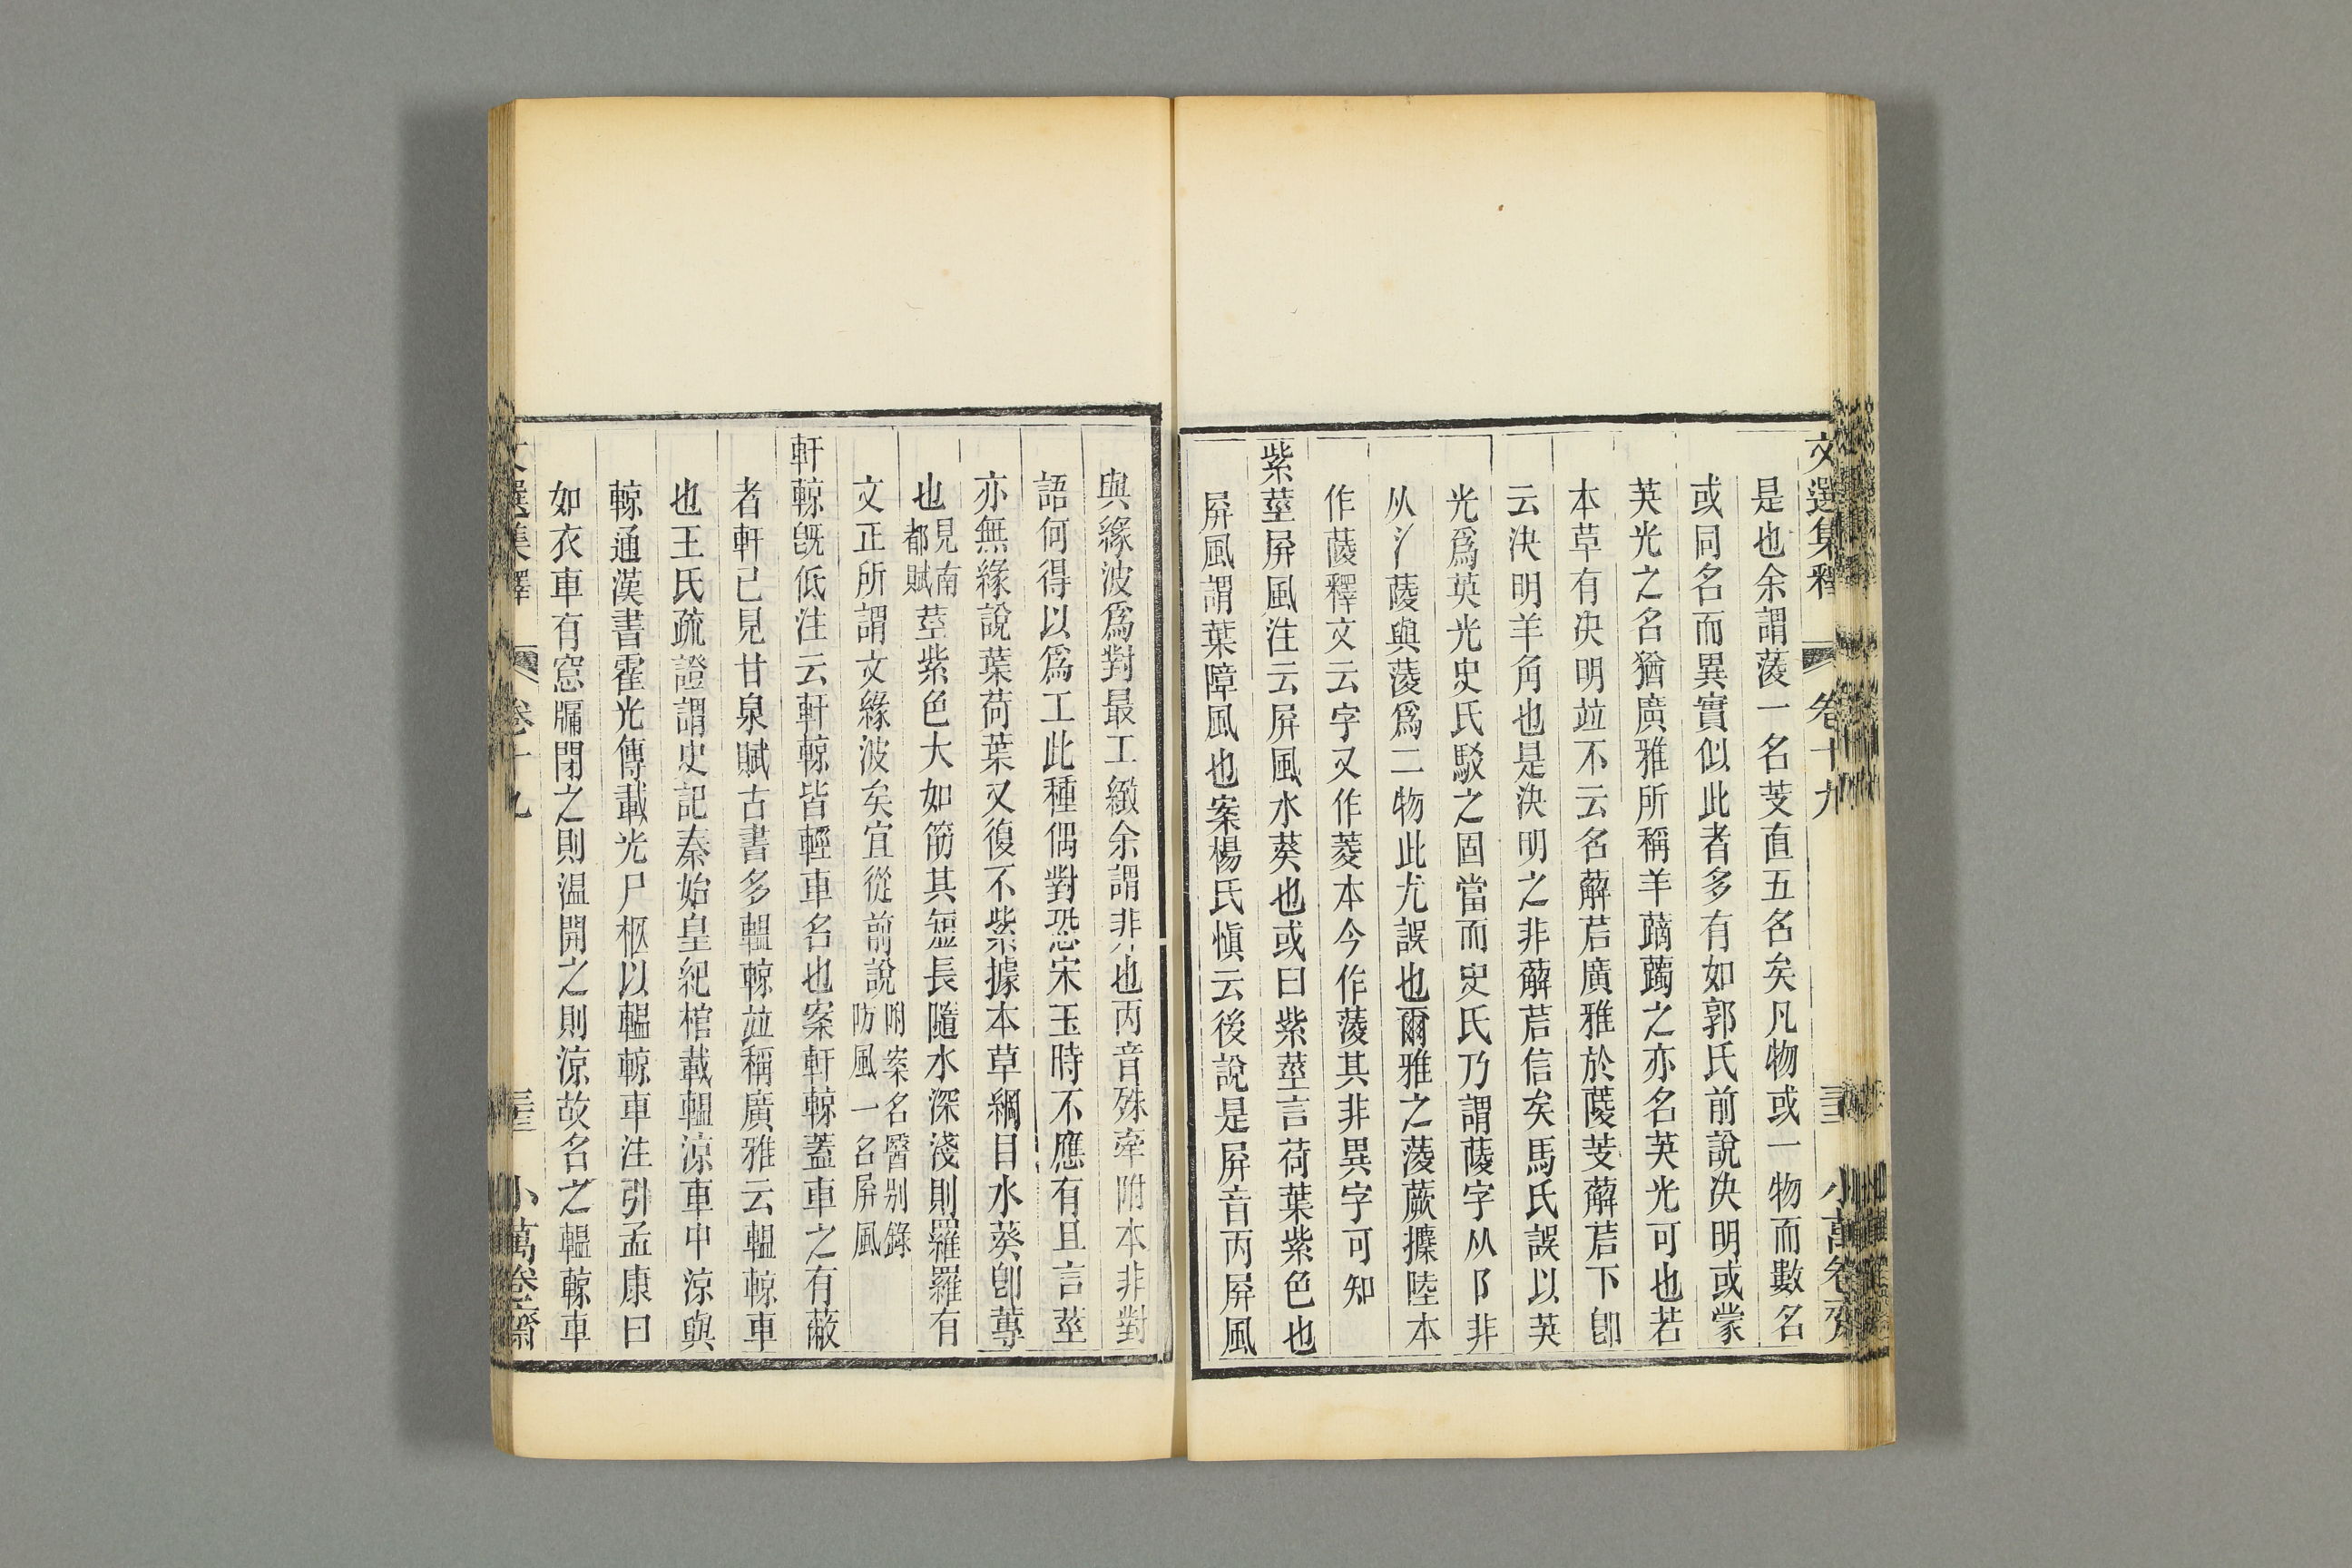 文選集釋 卷十九 小萬卷齋
是也余謂蔆一名芰直五名矣凡物或一物而數名
或同名而異實似此者多有如郭氏前說決明或蒙
英光之名猶廣雅所稱羊䕞䕽之亦名英光可也若
本草有決明竝不云名薢茩廣雅於䔖芰薢茩下卽
云決明羊角也是決明之非薢茩信矣馬氏誤以英
光爲英光史氏駁之固當而史氏乃謂䔖字从阝非
从氵䔖與蔆爲二物此尤誤也爾雅之蔆蕨攈陸本
作䔖釋文云字又作菱本今作蔆其非異字可知
紫莖屛風注云屛風水葵也或曰紫莖言荷葉紫色也
屛風謂葉障風也案楊氏愼云後說是屛音丙屛風
與緣波爲對最工緻余謂非也丙音殊牽附本非對
語何得以爲工此種偶對恐宋玉時不應有且言莖
亦無緣說葉荷葉又復不紫據本草綱目水葵卽蓴
也見南都賦莖紫色大如筯其短長隨水深淺則羅羅有
文正所謂文緣波矣宜從前說附案名醫別錄防風一名屛風
軒輬旣低注云軒輬皆輕車名也案軒輬蓋車之有蔽
者軒已見甘泉賦古書多轀輬竝稱廣雅云轀輬車
也王氏疏證謂史記秦始皇紀棺載轀涼車中涼與
輬通漢書霍光傳載光尸柩以轀輬車注引孟康曰
如衣車有窻牖閉之則温開之則涼故名之轀輬車
文選集釋 卷十九 小萬卷齋